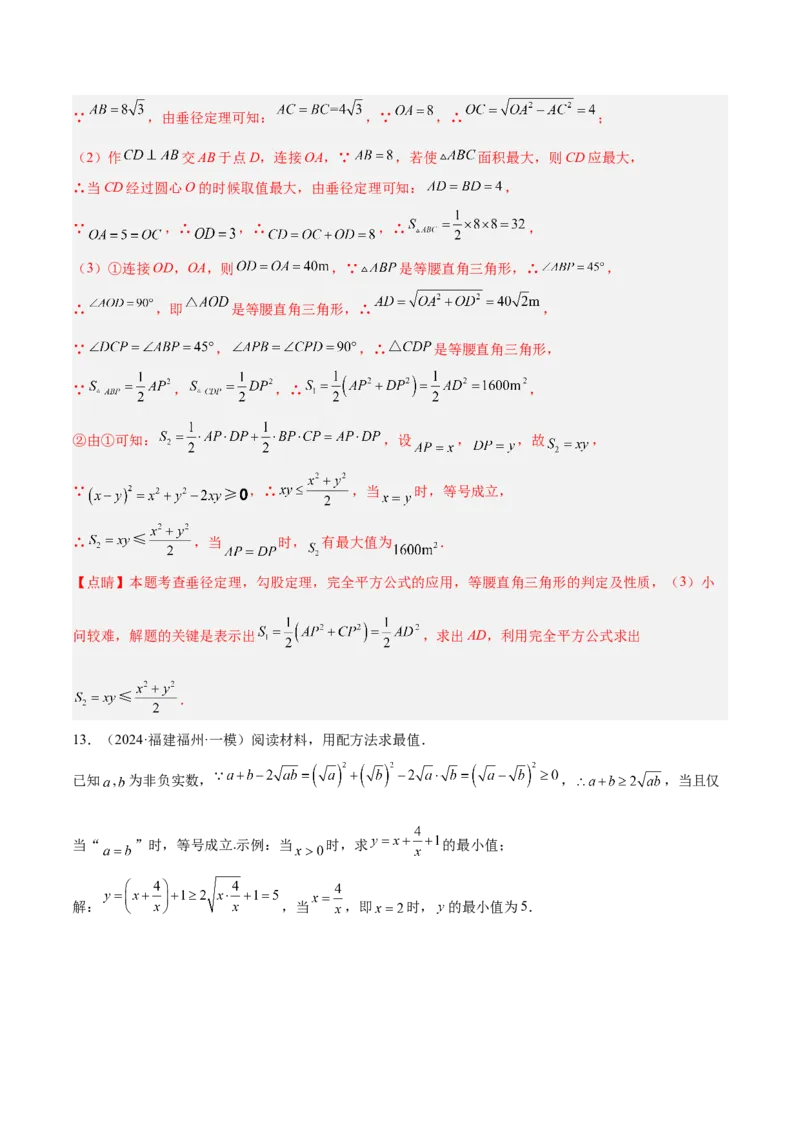 ∵ AB=8√3，由垂径定理可知：AC=BC=4√3，∵ OA=8，∴ OC=√(OA²−AC²)=4；
（2）作CD⊥AB交AB于点D，连接OA，∵ AB=8，若使△ABC面积最大，则CD应最大，
∴当CD经过圆心O的时候取值最大，由垂径定理可知：AD=BD=4，
∵ OA=5=OC，∴ OD=3，∴ CD=OC+OD=8，∴ S△ABC=1/2×8×8=32，
（3）①连接OD，OA，则OD=OA=40m，∵△ABP是等腰直角三角形，∴∠ABP=45°，
∴∠AOD=90°，即△AOD是等腰直角三角形，∴ AD=√(OA²+OD²)=40√2m，
∵∠DCP=∠ABP=45°，∠APB=∠CPD=90°，∴△CDP是等腰直角三角形，
∵ S△ABP=1/2AP²，S△CDP=1/2DP²，∴ S₁=1/2(AP²+DP²)=1/2AD²=1600m²，
②由①可知：S₂=1/2·AP·DP+1/2·BP·CP=AP·DP，设AP=x，DP=y，故S₂=xy，
∵(x−y)²=x²+y²−2xy≥0，∴xy≤(x²+y²)/2，当x=y时，等号成立，
∴ S₂=xy≤(x²+y²)/2，当AP=DP时，S₂有最大值为1600m²．
【点睛】本题考查垂径定理，勾股定理，完全平方公式的应用，等腰直角三角形的判定及性质，（3）小
问较难，解题的关键是表示出S₁=1/2(AP²+CP²)=1/2AD²，求出AD，利用完全平方公式求出
S₂=xy≤(x²+y²)/2．
13．（2024·福建福州·一模）阅读材料，用配方法求最值．
已知a,b为非负实数，∵a+b−2√ab=(√a)²+(√b)²−2√a·√b=(√a−√b)²≥0，∴a+b≥2√ab，当且仅
当“a=b”时，等号成立.示例：当x>0时，求y=x+4/x+1的最小值；
解：y=(x+4/x)+1≥2√(x·4/x)+1=5，当x=4/x，即x=2时，y的最小值为5．